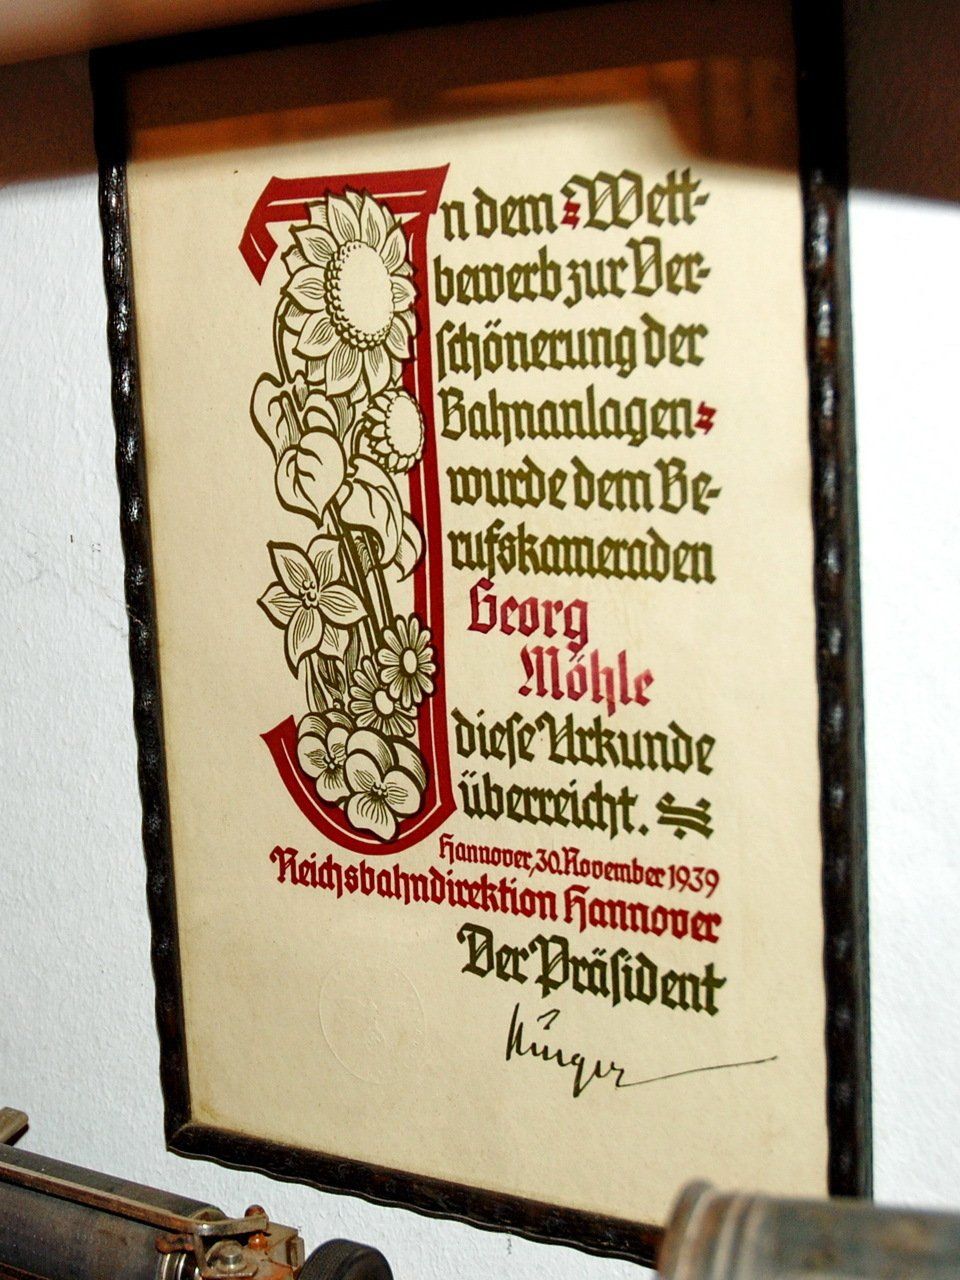 In dem Wett-
bewerb zur Ver-
schönerung der
Bahnanlagen
wurde dem Be-
rufskameraden
Georg
Möhle
diese Urkunde
überreicht.
Hannover, 30. November 1939
Reichsbahndirektion Hannover
Der Präsident